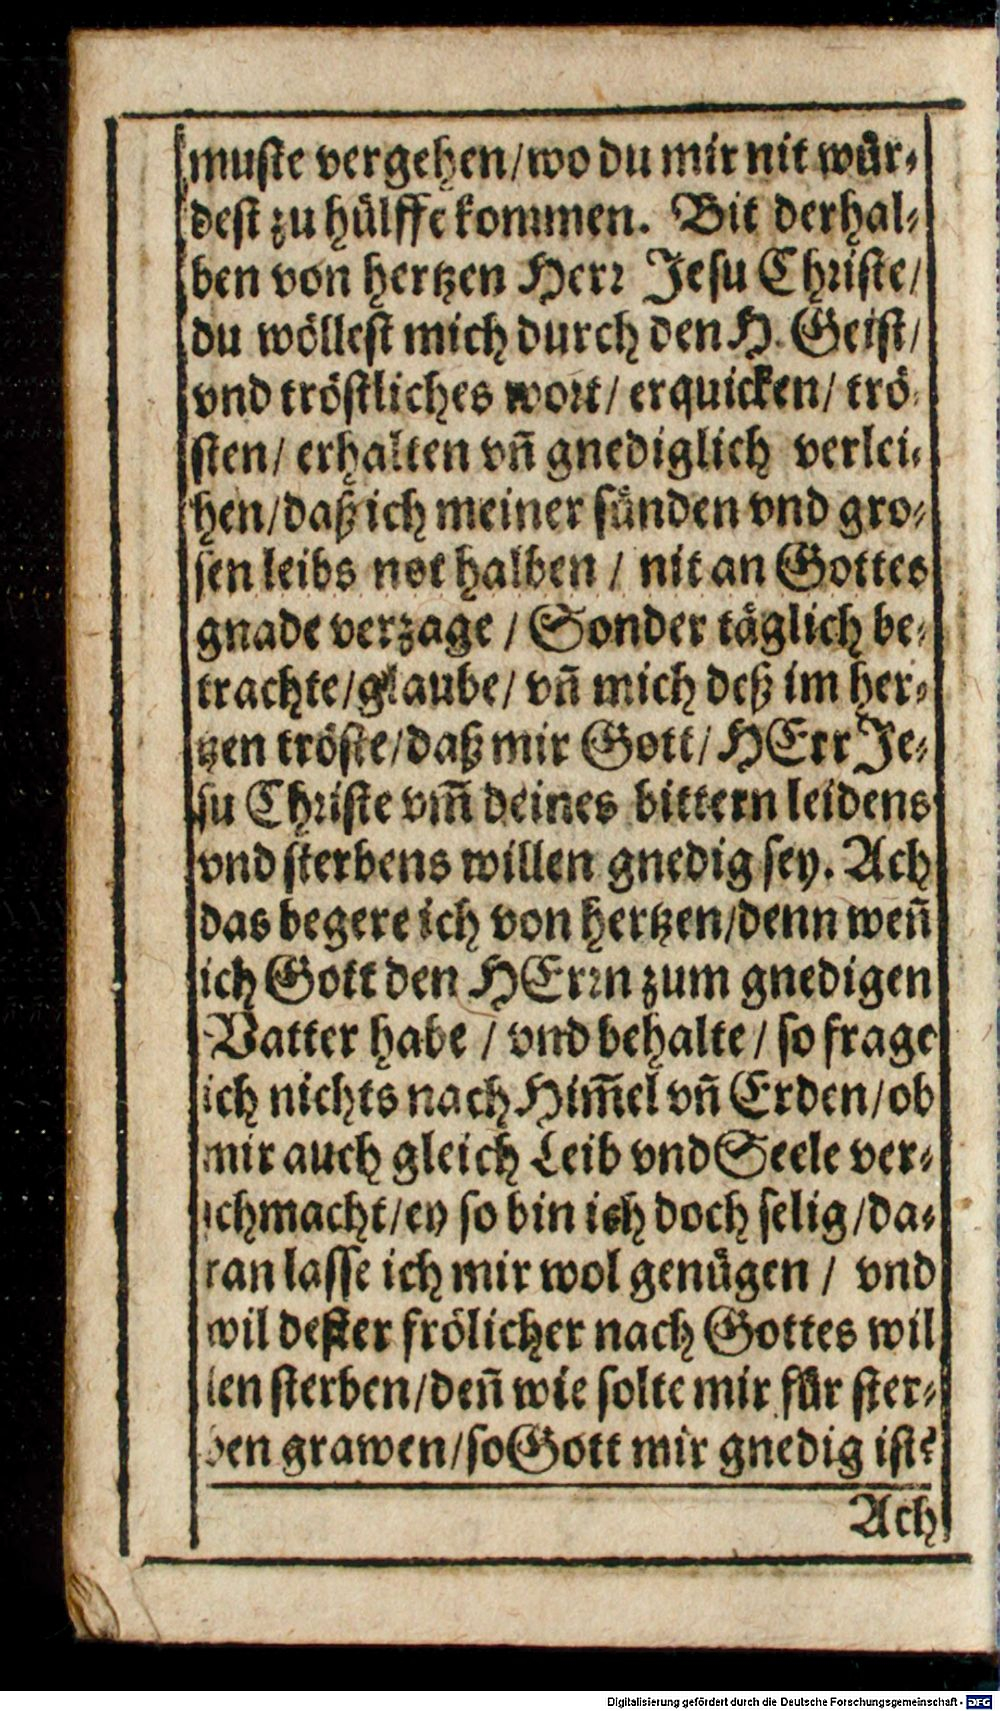 muste vergehen/wo du mir nit wür-
dest zu hülffe kommen. Bit derhal-
ben von hertzen Herr Jesu Christe/
du wöllest mich durch den H. Geist/
vnd tröstliches wort/ erquicken/ trö-
sten/ erhalten vñ gnediglich verlei-
hen/daß ich meiner sünden vnd gro-
sen leibs not halben / nit an Gottes
gnade verzage / Sonder täglich be-
trachte/glaube/ vñ mich deß im her-
tzen tröste/daß mir Gott/ HErr Je-
su Christe vm̃ deines bittern leidens
vnd sterbens willen gnedig sey. Ach
das begere ich von hertzen/denn weñ
ich Gott den HErrn zum gnedigen
Vatter habe / vnd behalte/ so frage
ich nichts nach Him̃el vñ Erden/ob
mir auch gleich Leib vnd Seele ver-
schmacht/ey so bin ich doch selig/da-
ran lasse ich mir wol genügen / vnd
wil dester frölicher nach Gottes wil
len sterben/deñ wie solte mir für ster-
ben grawen/so Gott mir gnedig ist?
Ach
Digitalisierung gefördert durch die Deutsche Forschungsgemeinschaft - DFG